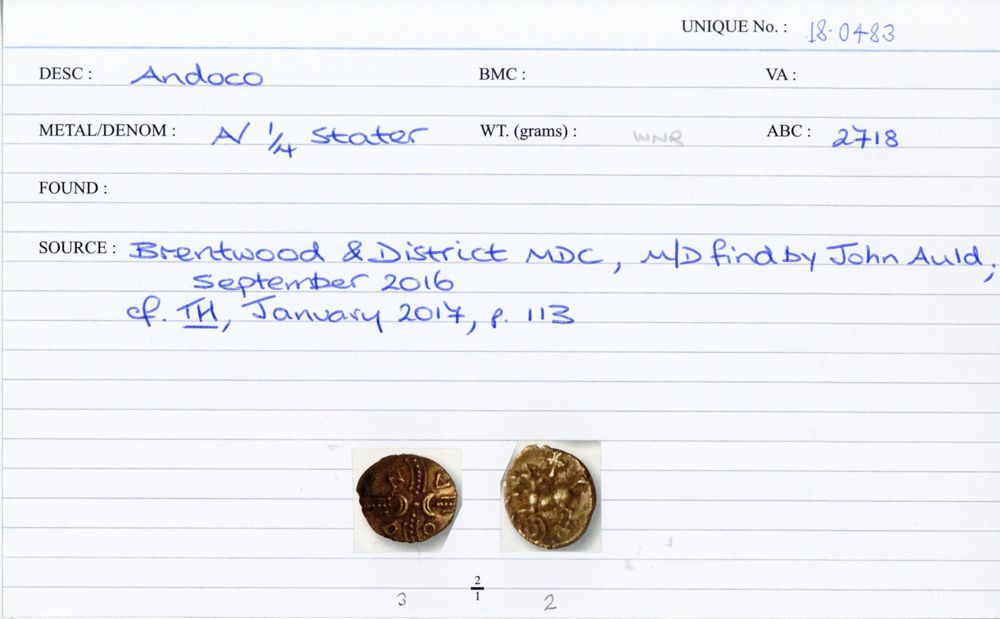 UNIQUE No. : 18.0483
DESC : Andoco BMC : VA :
METAL/DENOM : A/ 1/4 Stater WT. (grams) : WNR ABC : 2718
FOUND :
SOURCE : Brentwood & District MDC, M/D find by John Auld,
September 2016
cf. TH, January 2017, p. 113
2/1
3 2